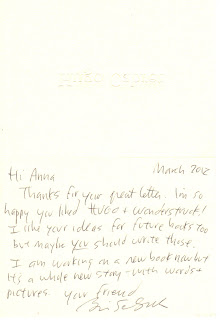 March 2012
Hi Anna
Thanks for your great letter. I'm so
happy you liked HUGO + Wonderstruck!
I like your ideas for future books too
but maybe you should write those.
I am working on a new book now but
it's a whole new story - with words +
pictures. your friend